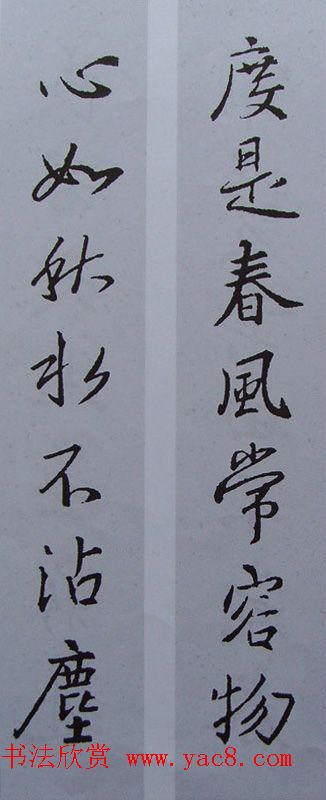 度是春風常容物
心如秋水不沾塵
书法欣赏 www.yac8.com